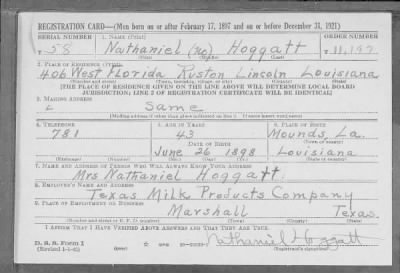 REGISTRATION CARD—(Men born on or after February 17, 1897 and on or before December 31, 1921)
SERIAL NUMBER 1. NAME (Print) ORDER NUMBER
T 58 Nathaniel (no) Hoggatt T 11,197
(First) (Middle) (Last)
2. PLACE OF RESIDENCE (Print)
406 West Florida Ruston Lincoln Louisiana
(Number and street) (Town, township, village, or city) (County) (State)
[THE PLACE OF RESIDENCE GIVEN ON THE LINE ABOVE WILL DETERMINE LOCAL BOARD
JURISDICTION; LINE 2 OF REGISTRATION CERTIFICATE WILL BE IDENTICAL]
3. MAILING ADDRESS
Same
[Mailing address if other than place indicated on line 2. If same insert word same]
4. TELEPHONE 5. AGE IN YEARS 6. PLACE OF BIRTH
781 43 Mounds, La.
DATE OF BIRTH (Town or county)
June 26 1898 Louisiana
(Exchange) (Number) (Mo.) (Day) (Yr.) (State or country)
7. NAME AND ADDRESS OF PERSON WHO WILL ALWAYS KNOW YOUR ADDRESS
Mrs Nathaniel Hoggatt
8. EMPLOYER'S NAME AND ADDRESS
Texas Milk Products Company
9. PLACE OF EMPLOYMENT OR BUSINESS
Marshall Texas
(Number and street or R. F. D. number) (Town) (County) (State)
I AFFIRM THAT I HAVE VERIFIED ABOVE ANSWERS AND THAT THEY ARE TRUE.
D. S. S. Form 1
(Revised 1-1-42) (over) Nathaniel Hoggatt
(Registrant's signature)